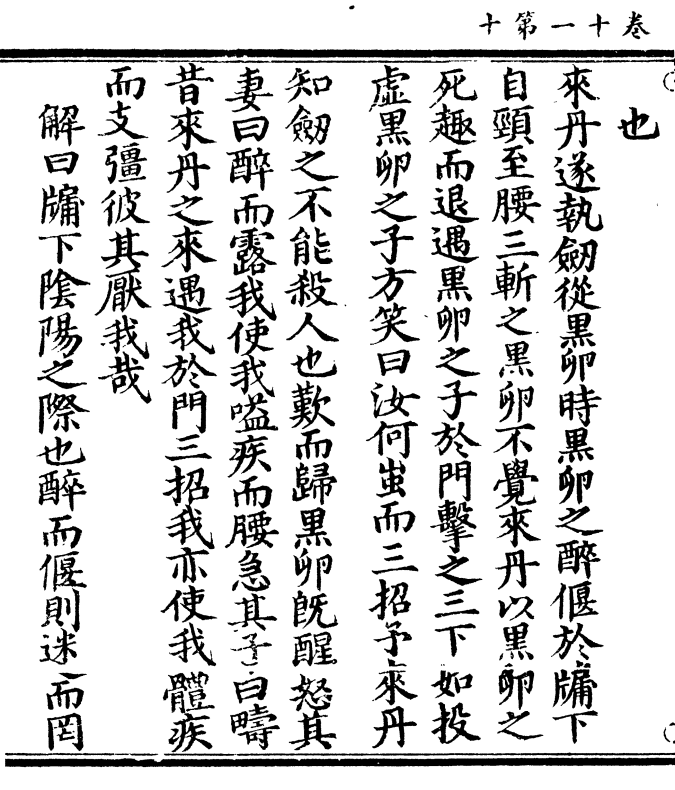 卷十一第十
也
來丹遂執劒從黒卵時黒卵之醉偃於牗下
自頸至腰三斬之黒卵不覺來丹以黒卵之
死趣而退遇黒卵之子於門擊之三下如投
虚黒卵之子方笑曰汝何蚩而三招予來丹
知劒之不能殺人也歎而歸黒卵旣醒怒其
妻曰醉而露我使我嗌疾而腰急其子曰疇
昔來丹之來遇我於門三招我亦使我體疾
而支彊彼其厭我哉
解曰牗下陰陽之際也醉而偃則迷而罔